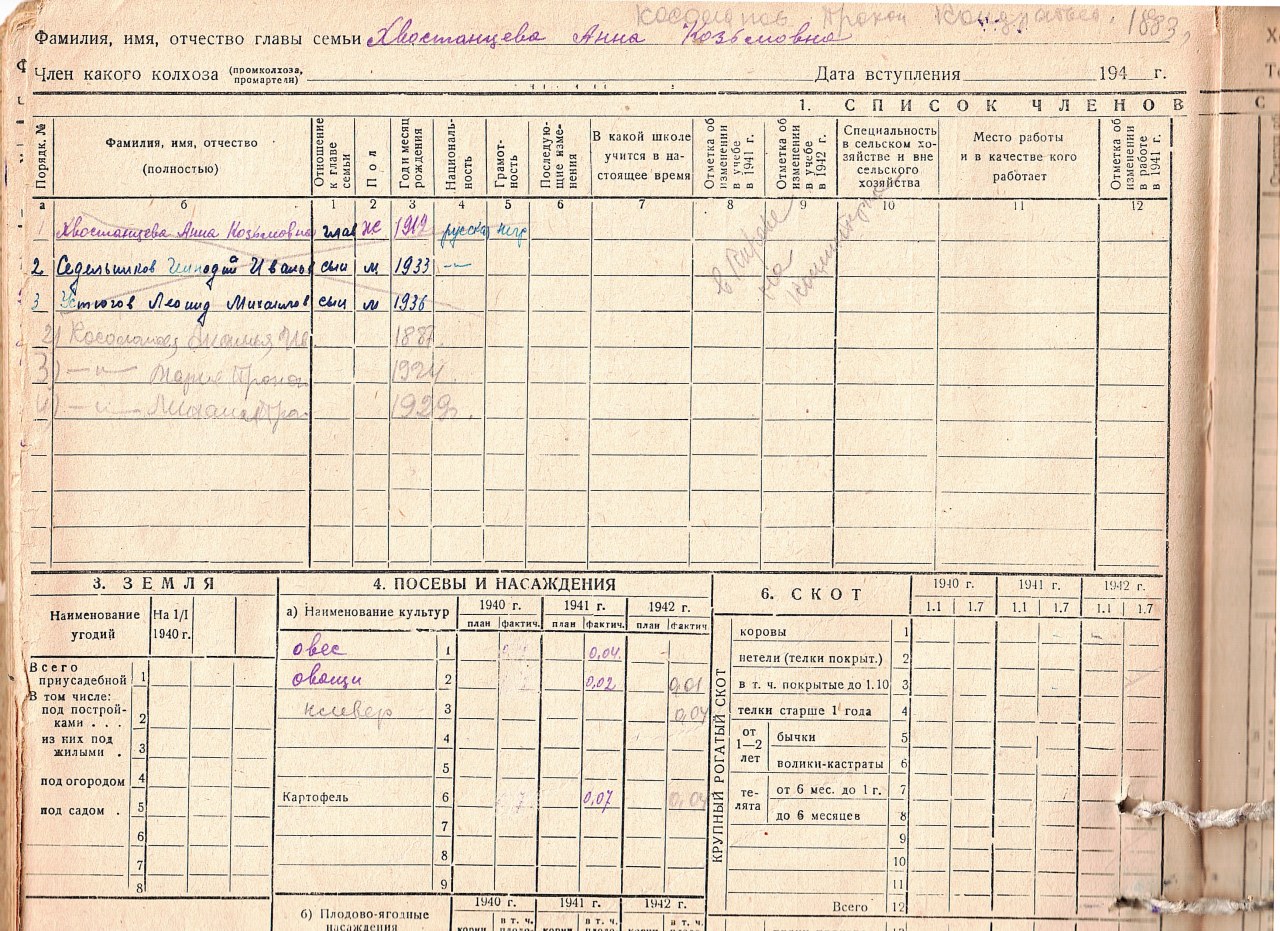 Косолапов Прокоп Кондратьев. 1883
Фамилия, имя, отчество главы семьи Хвостанцева Анна Козьмовна
Член какого колхоза (промколхоза, промартели) Дата вступления 194 г.
1. СПИСОК ЧЛЕНОВ
Порядк. № Фамилия, имя, отчество (полностью) Отношение к главе семьи Пол Год и месяц рождения Националь-ность Грамот-ность Последую-щие изме-нения В какой школе учится в на-стоящее время Отметка об изменении в учебе в 1941 г. Отметка об изменении в учебе в 1942 г. Специальность в сельском хо-зяйстве и вне сельского хозяйства Место работы и в качестве кого работает Отметка об изменении в работе в 1941 г.
а б 1 2 3 4 5 6 7 8 9 10 11 12
1 Хвостанцева Анна Козьмовна глав ж 1912 русская негр
2 Седельников Иванов сын м 1933 -"-
3 Устюгов Леонид Михайлов сын м 1936
2) Косолапова Ив. 1887.
3) —"— Мария Прокоп 1924
4) —"— Михаил Про. 1929.
в на
3. ЗЕМЛЯ
Наименование угодий На 1/I 1940 г.
Всего приусадебной 1
В том числе:
под построй-ками . . . 2
из них под жилыми . 3
под огородом 4
под садом . 5
6
7
8
4. ПОСЕВЫ И НАСАЖДЕНИЯ
а) Наименование культур 1940 г. 1941 г. 1942 г.
план фактич. план фактич. план фактич.
овес 1 0,04
овощи 2 0,02 0,01
клевер 3 0,04
4
5
Картофель 6 0,07 0,04
7
8
9
б) Плодово-ягодные насаждения 1940 г. 1941 г. 1942 г.
корни в т. ч. корни в т. ч. корни в т. ч.
6. СКОТ 1940 г. 1941 г. 1942 г.
1.1 1.7 1.1 1.7 1.1 1.7
КРУПНЫЙ РОГАТЫЙ СКОТ
коровы 1
нетели (телки покрыт.) 2
в т. ч. покрытые до 1.10 3
телки старше 1 года 4
от 1—2 лет бычки 5
волики-кастраты 6
те-лята от 6 мес. до 1 г. 7
до 6 месяцев 8
9
10
11
Всего 12